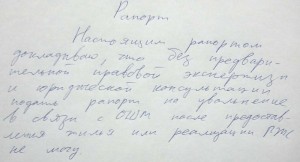 Рапорт
Настоящим рапортом
докладываю, что без предвари-
тельной правовой экспертизы
и юридической консультации
подать рапорт на увольнение
в связи с ОШМ после предостав-
ления жилья или реализации ПЖС
не могу